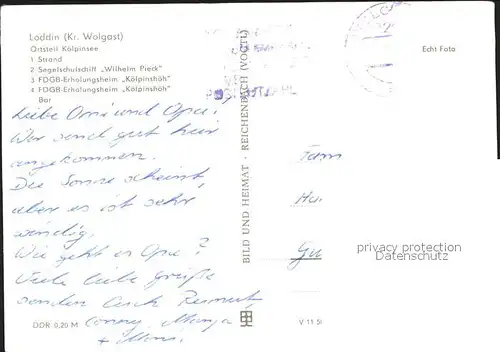 Loddin (Kr. Wolgast)
Ortsteil Kölpinsee
1 Strand
2 Segelschulschiff "Wilhelm Pieck"
3 FDGB-Erholungsheim „Kölpinshöh"
4 FDGB-Erholungsheim „Kölpinshöh"
Bar
Echt Foto
Liebe Omi und Opa!
Wir sind gut hier
angekommen.
Die Sonne scheint,
aber es ist sehr
windig.
Wie geht es Opa?
Viele liebe Grüße
senden Euch
Conny,
DDR 0,20 M
BILD UND HEIMAT · REICHENBACH (VOGTL)
V 11 5
Fam
privacy protection
Datenschutz